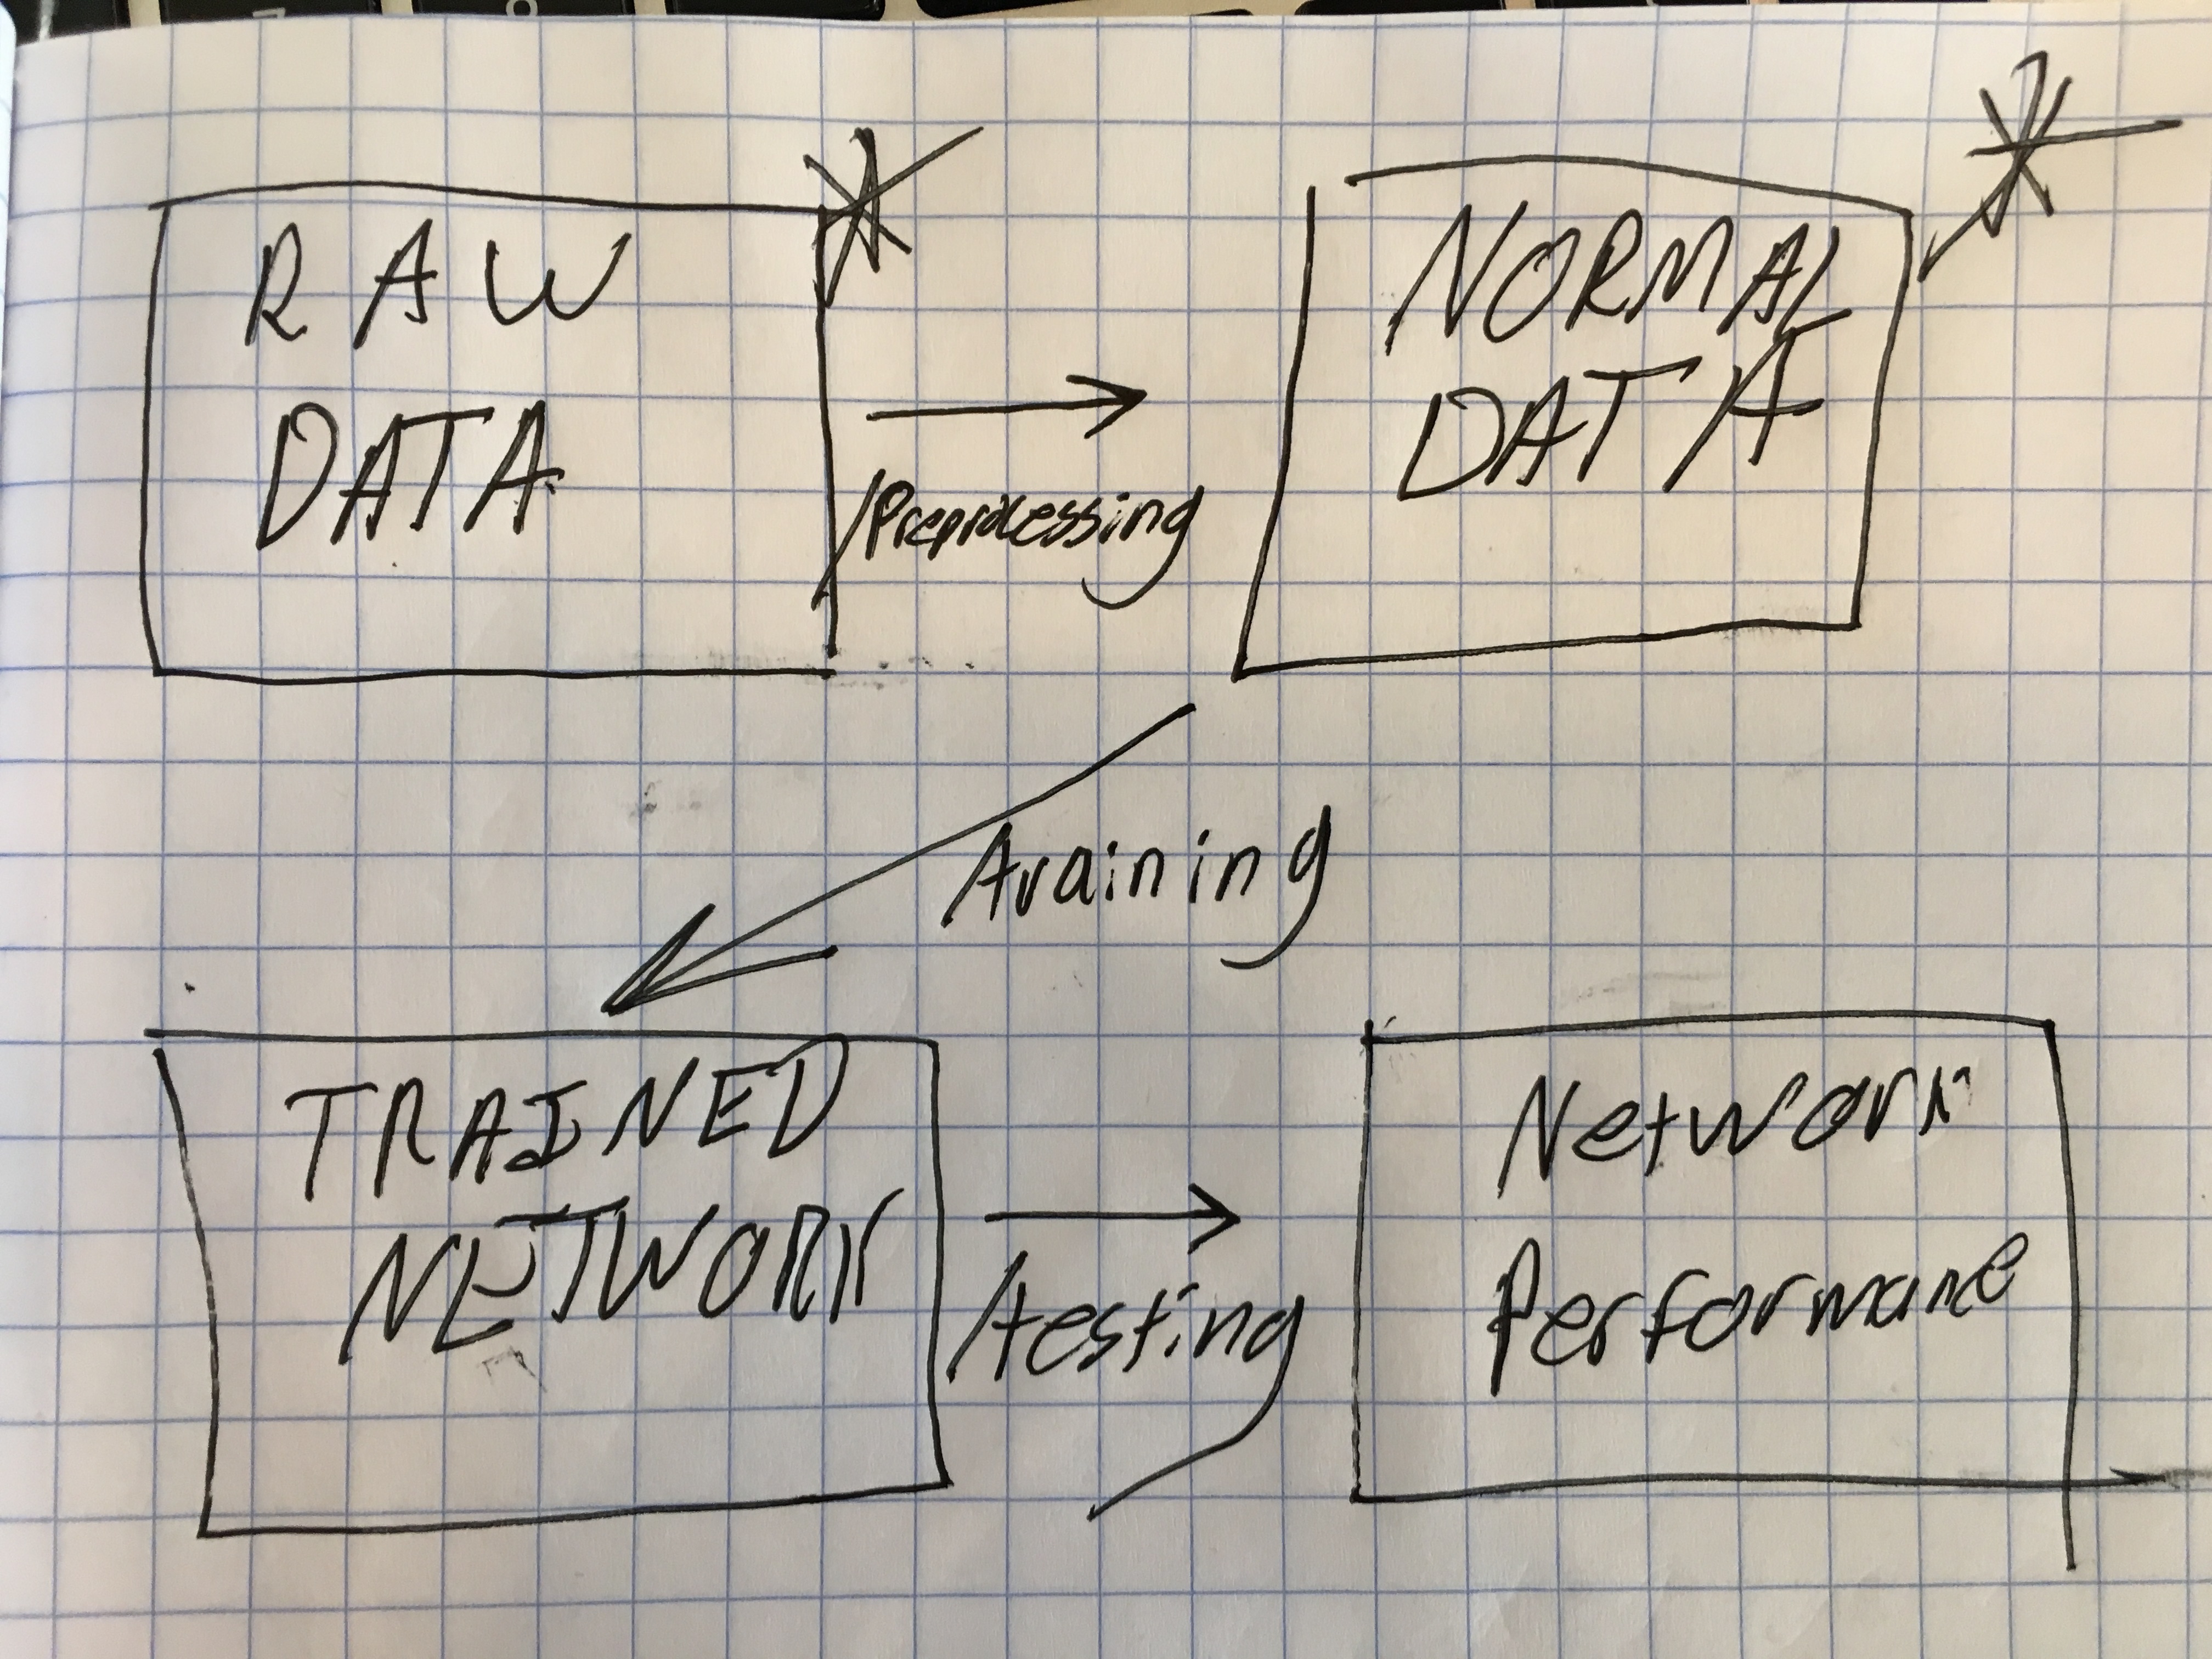 RAW
DATA
*
Preprocessing
NORMAL
DATA
*
training
TRAINED
NETWORK
testing
Network
Performance